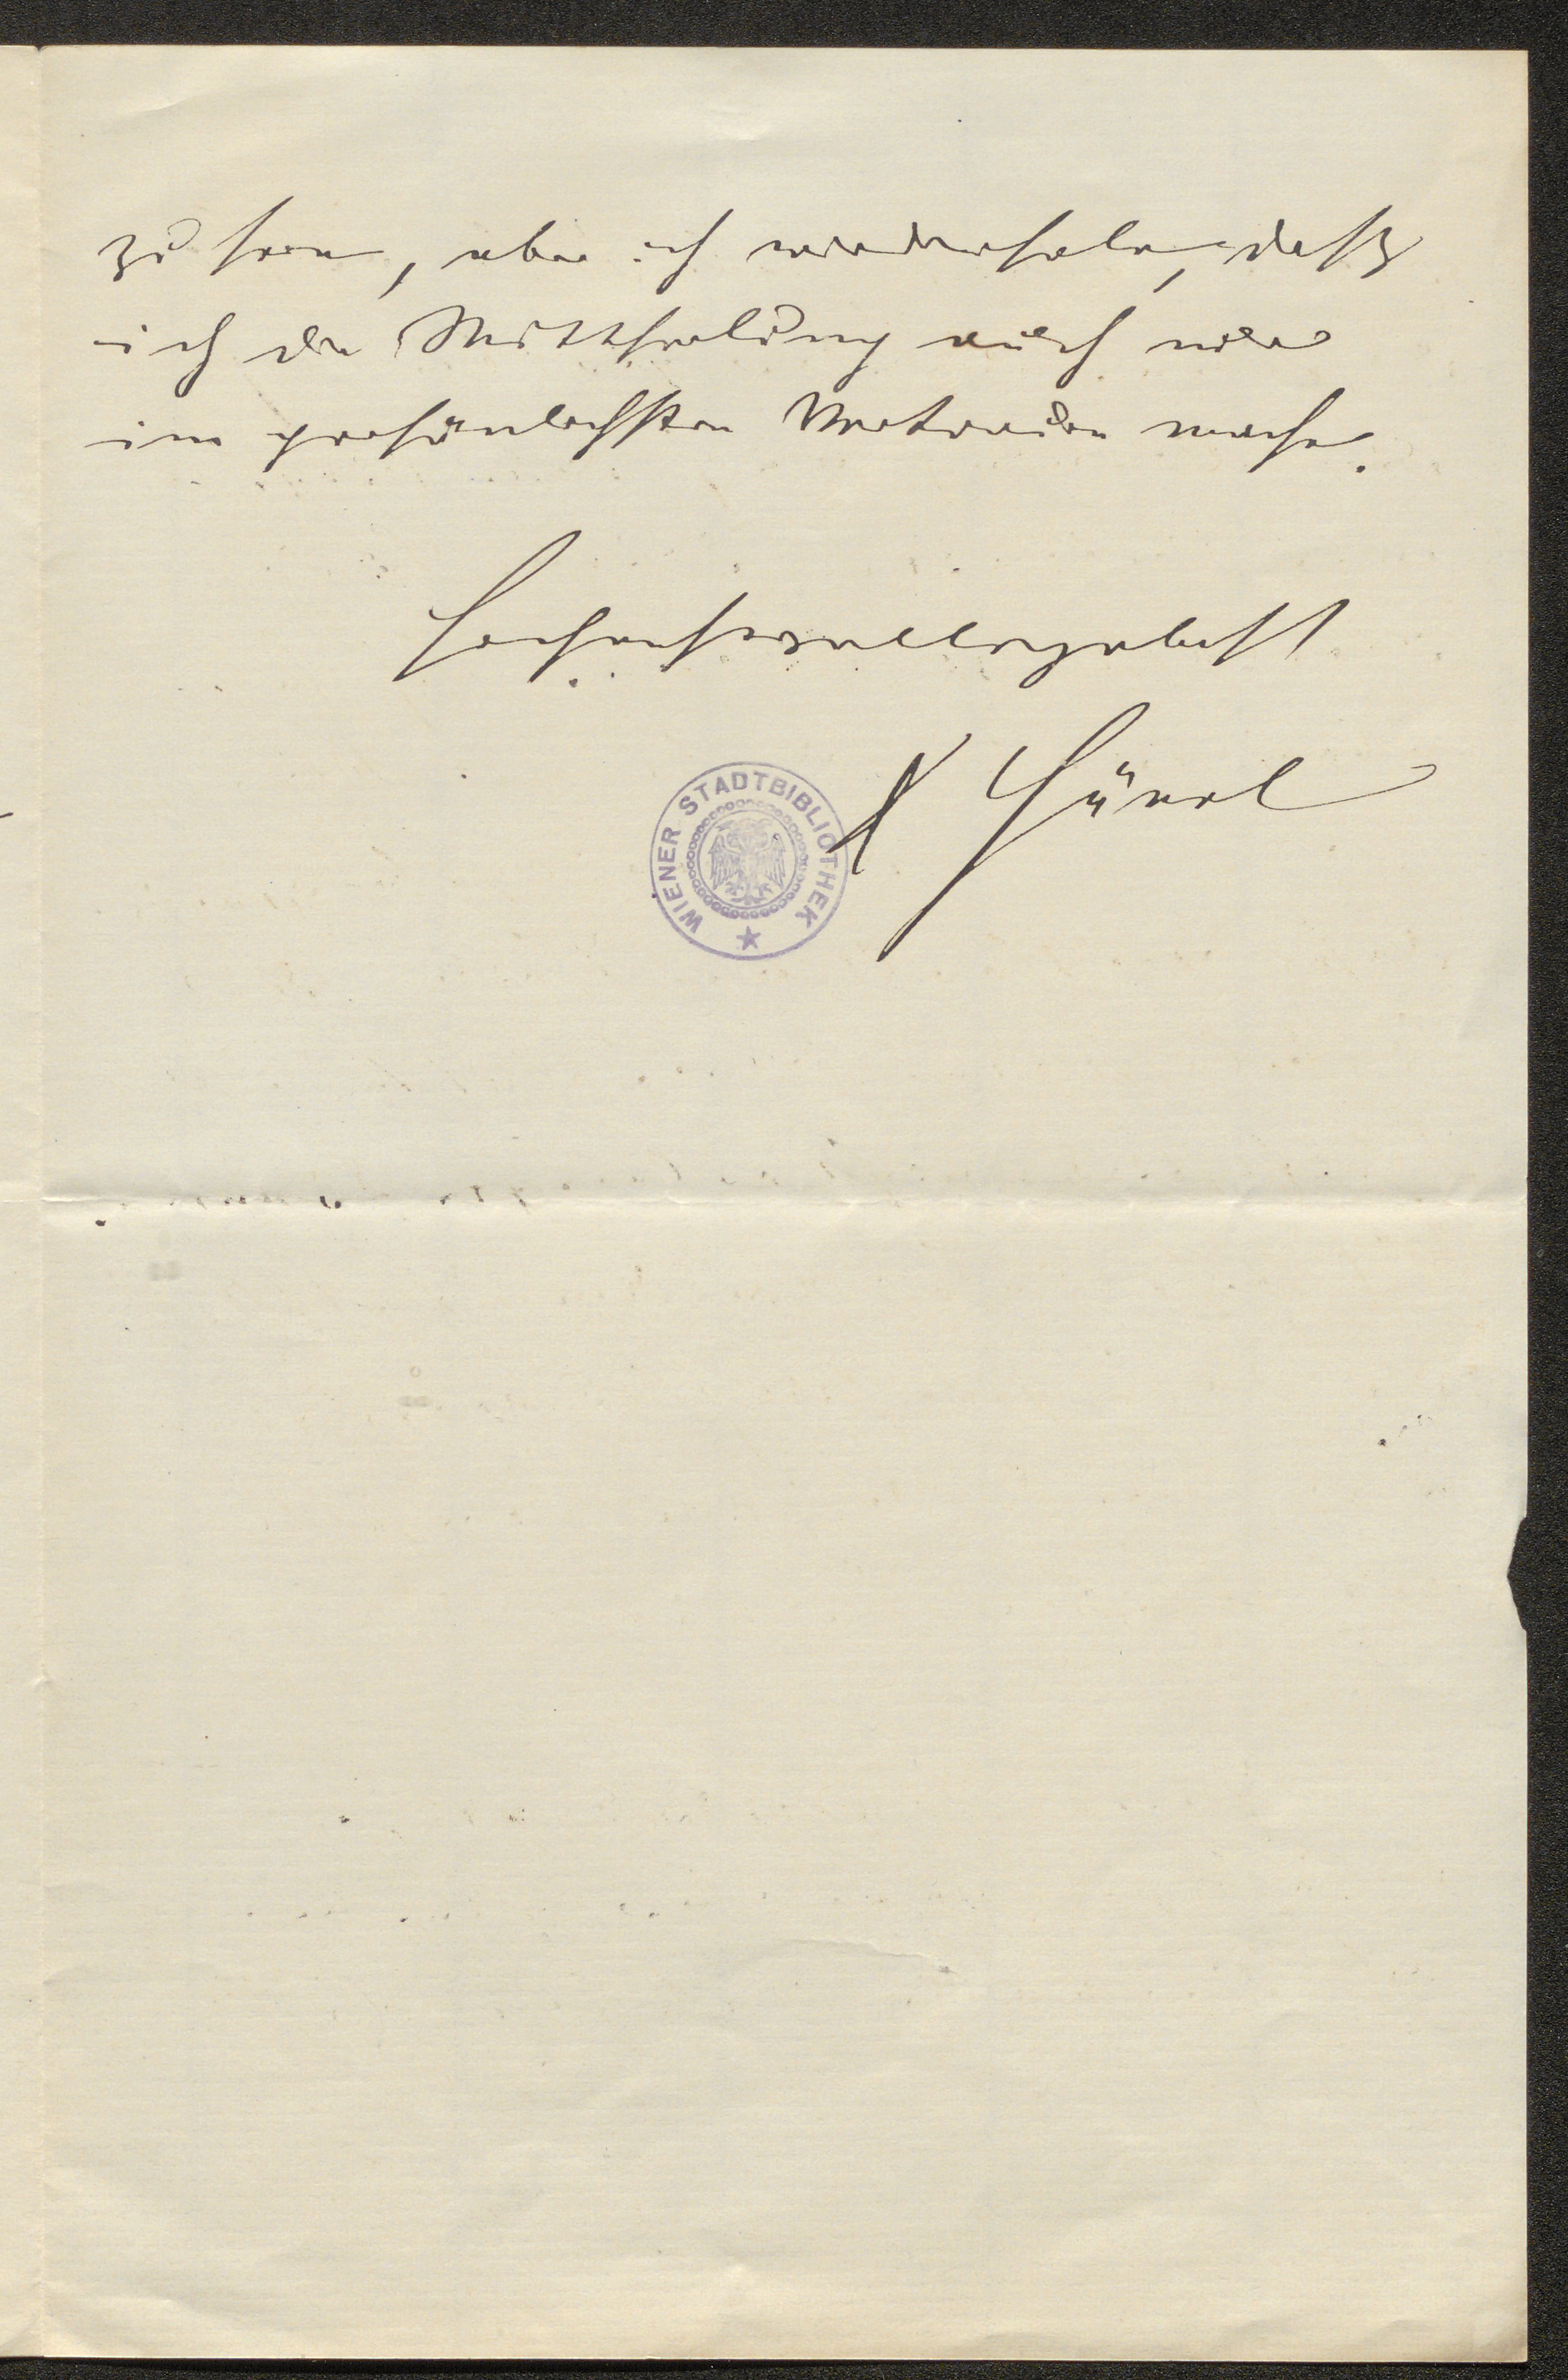 zu sein, aber ich wiederhole, daß
ich die Mittheilung auch nur
im persönlichsten Vertrauen mache.
Hochachtungsvoll ergebenst
WIENER STADTBIBLIOTHEK